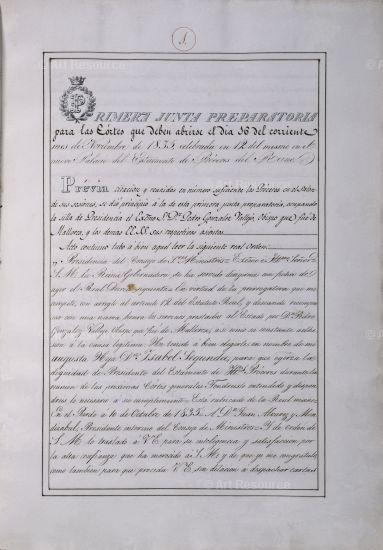 1.
PRIMERA JUNTA PREPARATORIA
para las Córtes que deben abrirse el dia 16 del corriente
mes de Noviembre de 1835, celebrada en 12 del mismo en el
nuevo Salon del Estamento de Próceres del Reino.
Prévia citacion, y reunidos en número suficiente los Próceres en el salon
de sus sesiones, se dió principio á la de esta primera junta preparatoria, ocupando
la silla de Presidencia el Exmo. Sr. Dn. Pedro Gonzalez Vallejo, Obispo que fué de
Mallorca, y los demas SS. sus respectivos asientos.
Acto continuo tuvo á bien aquel leer la siguiente real orden:
Presidencia del Consejo de Sres. Ministros. Exmo. é Illmo. Señor:
S. M. la Reina Gobernadora se ha servido dirigirme con fecha de
ayer el Real Decreto siguiente: En virtud de la prerogativa que me
compete, con arreglo al articulo 12 del Estatuto Real, y deseando recompensar
con una nueva honra los servicios prestados al Estado por Dn. Pedro
Gonzalez Vallejo, Obispo que fué de Mallorca, asi como su constante adhesion
á la causa legitima: He venido á bien elegirle, en nombre de mi
augusta Hija Dª. Isabel Segunda, para que ejerza la
dignidad de Presidente del Estamento de Illes. Próceres durante la
reunion de las proximas Córtes generales. Tendreislo entendido, y dispondreis
lo necesario á su cumplimiento. Está rubricado de la Real mano.
En el Pardo á 10 de Octubre de 1835. A Dn. Juan Alvarez y Mendizabal,
Presidente interino del Consejo de Ministros. Y de orden de
S. M. lo traslado á V. E. para su inteligencia y satisfaccion por
la alta confianza que ha merecido á S. M. y de que yo me congratulo
como tambien para que proceda V. E. sin dilacion á despachar cartas
© Art Resource